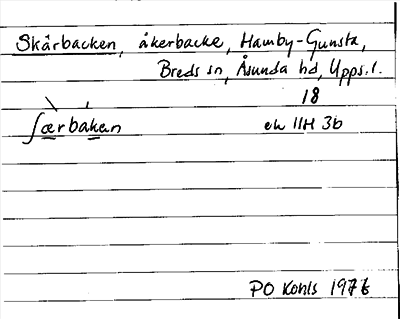 Skärbacken, åkerbacke, Hamby-Gunsta,
Breds sn, Åsunda hd, Upps. l.
18
ʃæ̀rbákan ek 11H 3b
PO Kohls 1976